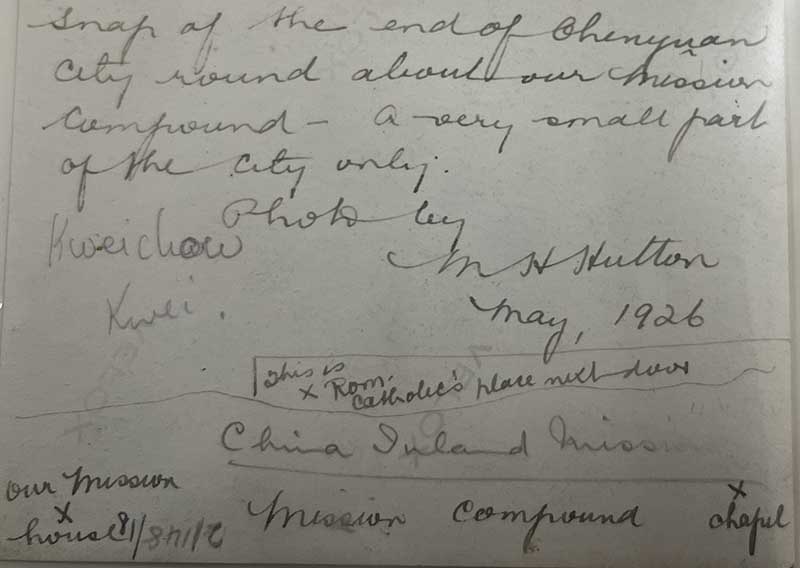 Snap of the end of Chenyuan
City round about our Mission
Compound - A very small part
of the City only.
Photo by
Kweichow
M H Hutton
Kwei.
May, 1926
This is
x Rom.
Catholic's place next door
China Inland Mission
our Mission
x
house
Mission Compound
x
chapel